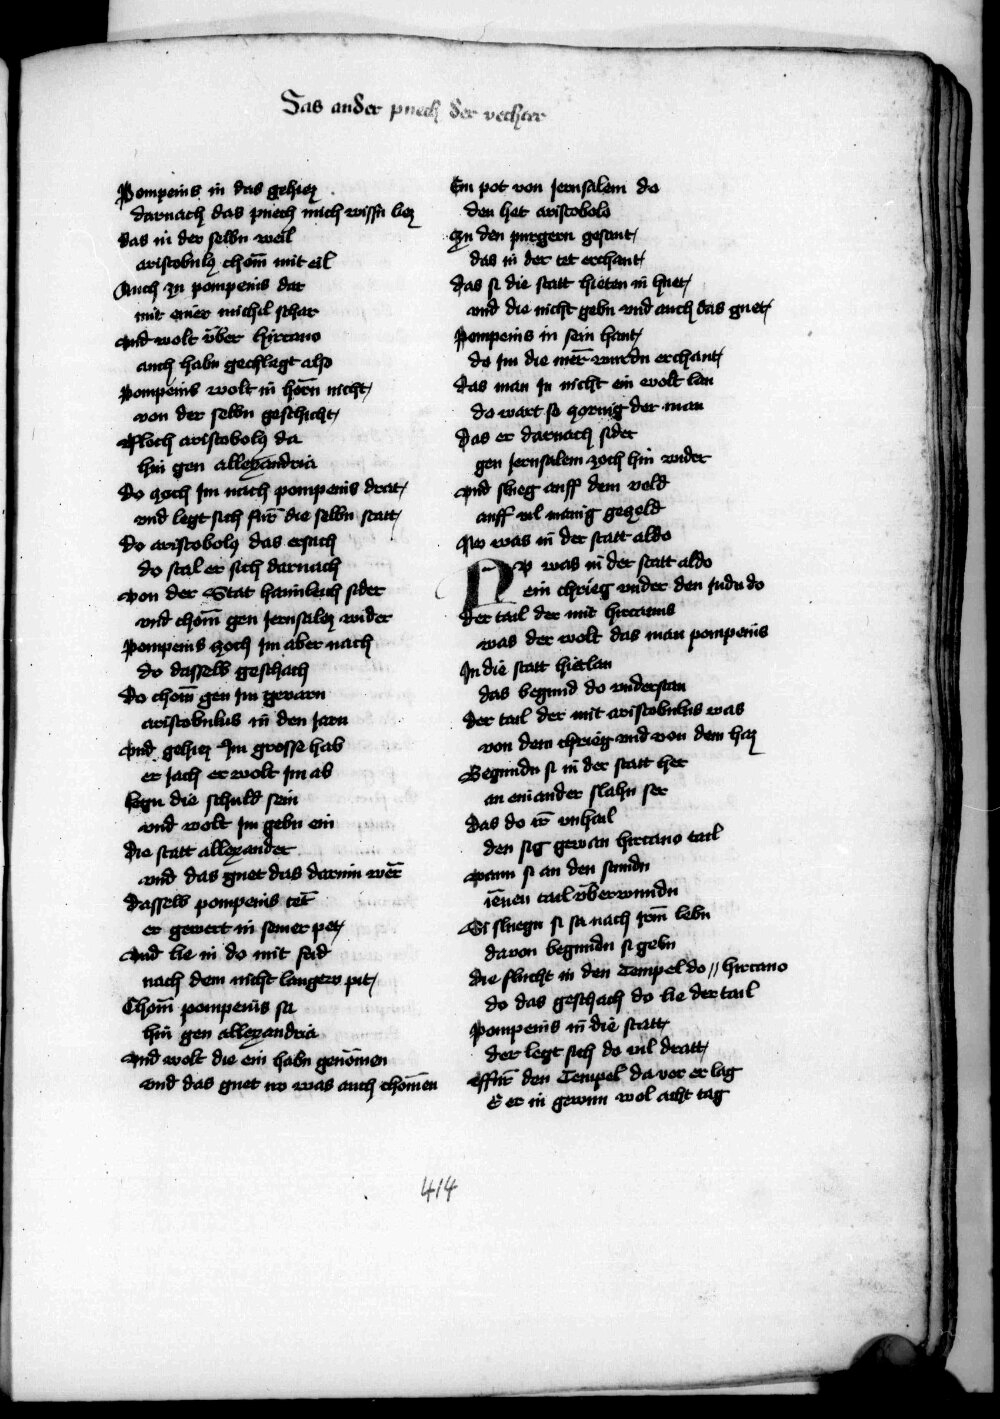 Das ander puech der vechter
Pompeius in das gehiez
darnach das puech mich wissn liez
das in der selbn weil
aristobulus chom̄ mit eil
Auch zu pompeius dar
mit einer michil schar
Vnd wolt vber hircano
auch habn gechlagt also
Pompeius wolt in horn̄ nicht
von der selbn geschicht
Floch aristobolus da
hin gen allexandria
Do zoch im nach pompeius drat
vnd legt sich fur die selbn statt
Do aristobolus das ersach
do stal er sich darnach
von der Stat haimleich sider
vnd chom̄ gen Jerusalez wider
Pompeius zoch Im aber nach
do dasselb geschach
Do chom̄ gen Im gevarn
aristobulus in den Jarn
Vnd gehiez Im grosse hab
er Jach er wolt Im ab
legn die schuld sein
vnd wolt Im gebn ein
die statt allexander
vnd das guet das darinn wer̄
Dasselb pompeius tet̄
er gewert in seiner pet
Vnd lie in do mit frid
nach dem nicht langero pit
Chom̄ pompeius sa
hin gen allexandria
Vnd wolt die ein habn genom̄en
vnd das guet no was auch chom̄en
Ein pot von Jerusalem do
den het aristobolo
Zu den purgern gesant
das in der tet erchant
das si die statt hieten in huet
vnd die nicht gebn vnd auch das guet
Pompeius in sein hant
do Im die mer̄ wurdn erchant
das man In nicht ein wolt lan
do wart so zornig der man
Das er darnach sider
gen Jerusalem zoch hin wider
Vnd slueg auff dem veld
auff vil manig gezeld
Nv was in der statt aldo
Nv was in der statt aldo
ein chrieg vnder den Judn do
Der tail der mit hircanus
was der wolt das man pompeius
In die statt hiet lan
das begund do vnderstan
Der tail der mit aristobulus was
von dem chrieg vnd von dem haz
Begundn si in der statt her
an einander slahn ser
Das do ir̄ vnhail
den sig gewan hircano tail
wann si an den stundn
ienen tail vberwundn
Si sluegn si sa nach irm̄ lebn
davon begundn si gebn
die flucht in den Tempel do // hircano
do das geschach do lie der tail
Pompeius in die statt
der legt sich do vil dratt
Fur den Tempel da vor er lag
E er in gewun wol acht tag
414